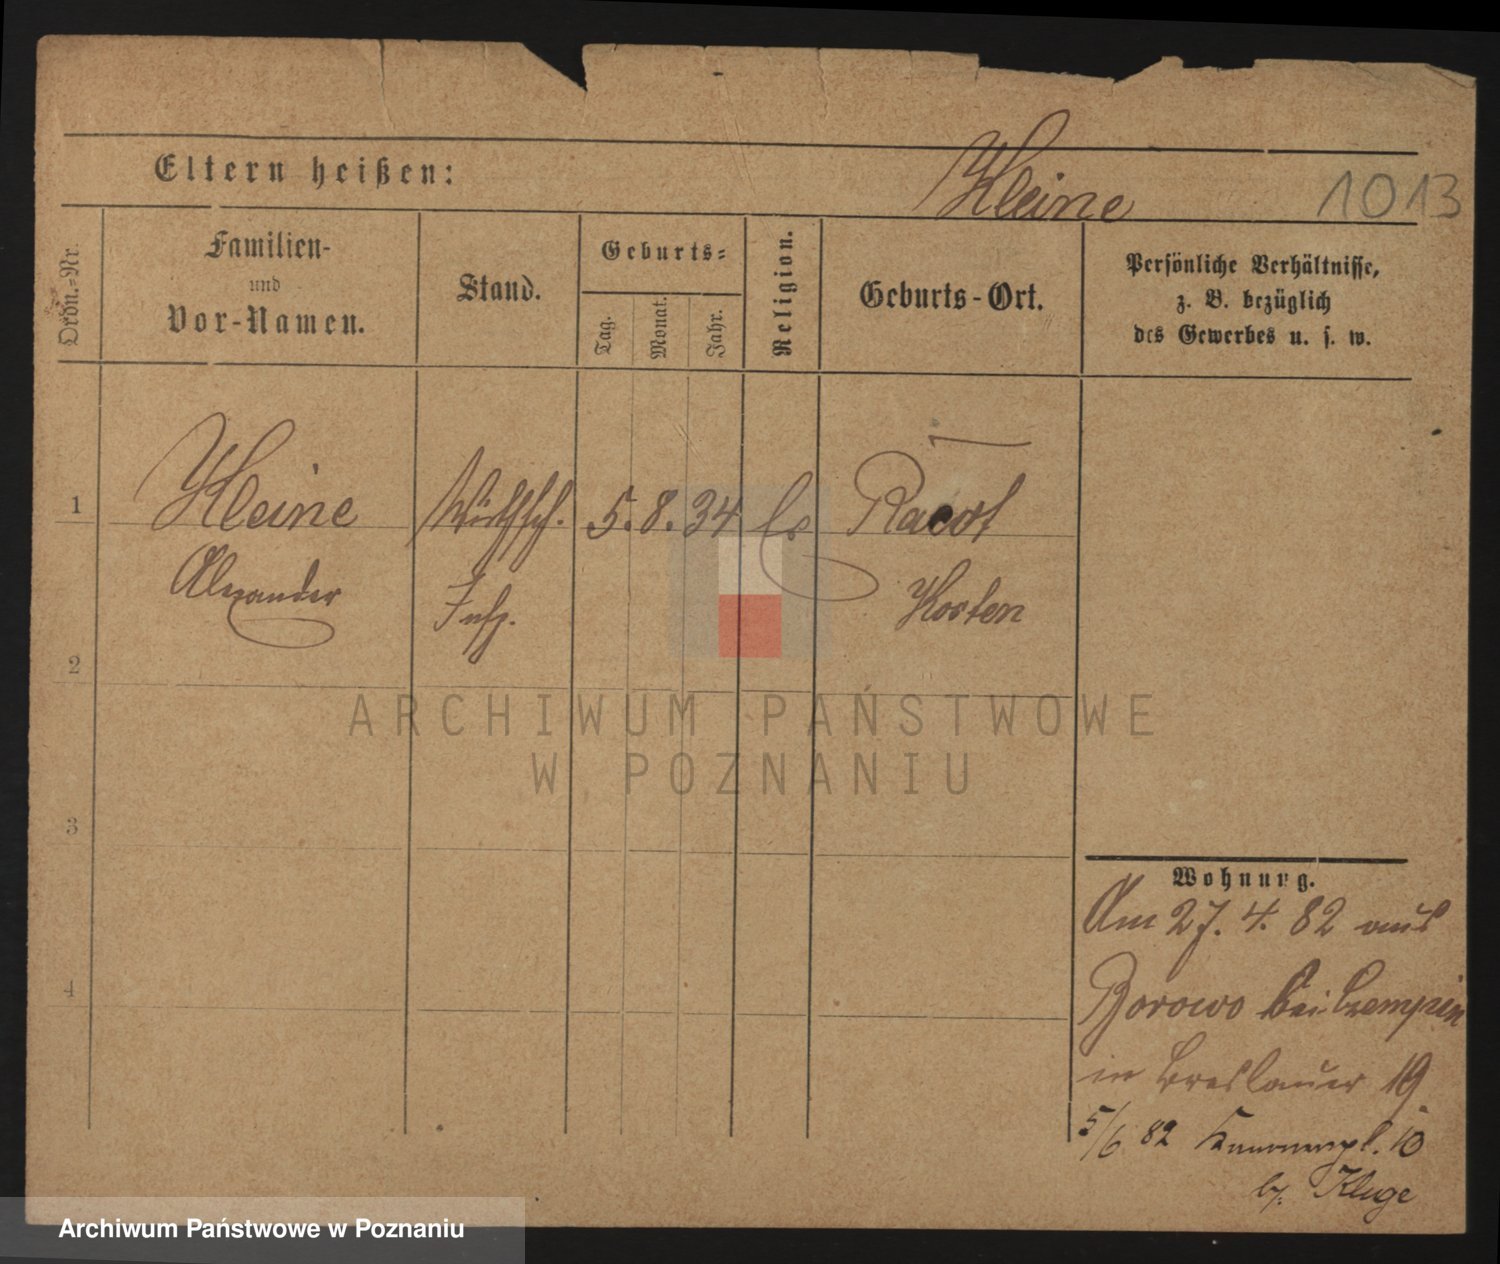 Eltern heißen:
Kleine
1013
Ordn.=Nr.
Familien-
und
Vor-Namen.
Stand.
Geburts=
Tag.
Monat.
Jahr.
Religion.
Geburts-Ort.
Persönliche Verhältnisse,
z. B. bezüglich
des Gewerbes u. s. w.
1
Kleine
Wirthsch.
5. 8. 34
Racot
Alexander
Insp.
Kosten
2
3
4
ARCHIWUM PAŃSTWOWE
W POZNANIU
Wohnung.
Am 27. 4. 82 aus
Borowo bei Czempin
in Breslauer 19
5/6 82 10
b/: Kluge
Archiwum Państwowe w Poznaniu